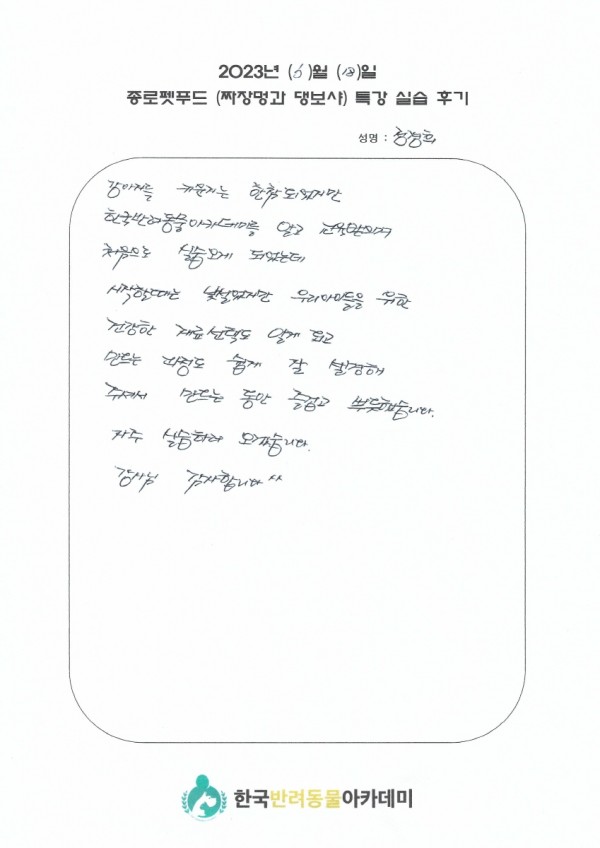 2023년 (6)월 (18)일
종로펫푸드 (짜장멍과 댕보샤) 특강 실습 후기
성명 : 정경희
강아지를 키운지는 한참 되었지만
한국반려동물아카데미를 알고 교육받으며
처음으로 실습오게 되었는데
시작할때는 낯설었지만 우리아이들을 위한
건강한 재료선택도 알게 되고
만드는 과정도 쉽게 잘 설명해
주셔서 만드는 동안 즐겁고 뿌듯했습니다.
자주 실습하러 오겠습니다.
강사님 감사합니다 ^^
한국반려동물아카데미